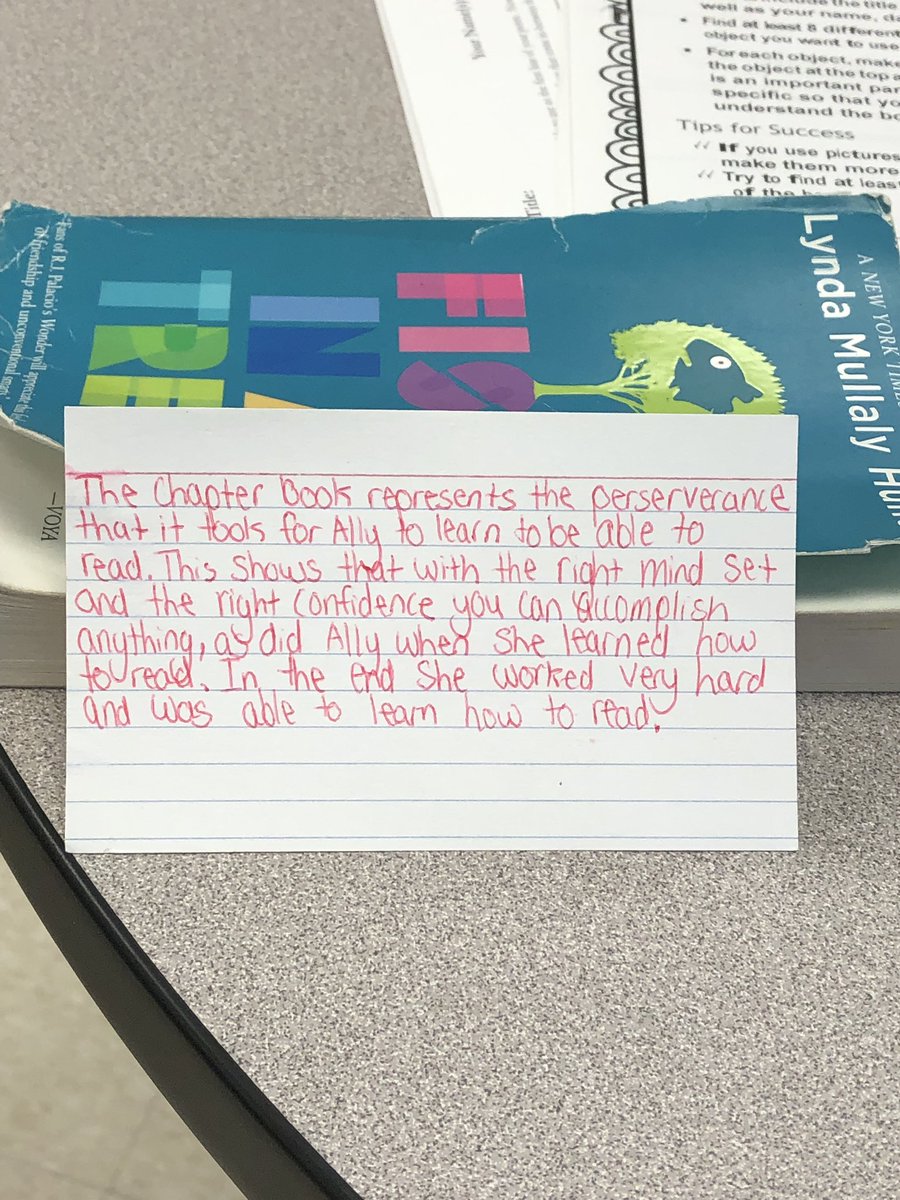 well as your name, da
Find at least 8 different
object you want to use
For each object, make
the object at the top a
is an important par
specific so that yo
understand the bo
Tips for Success
If you use pictures
make them more
Try to find at least
of the
Title:
A NEW YORK TIMES
Lynda Mullaly Hun
FIS
IN A
TRE
Fans of R.J. Palacio's Wonder will appreciate this
of friendship and unconventional smarts
—VOYA
The Chapter book represents the perserverance
that it tools for Ally to learn to be able to
read. This shows that with the right mind set
and the right confidence you can accomplish
anything, as did Ally when she learned how
to read. In the end she worked very hard
and was able to learn how to read.